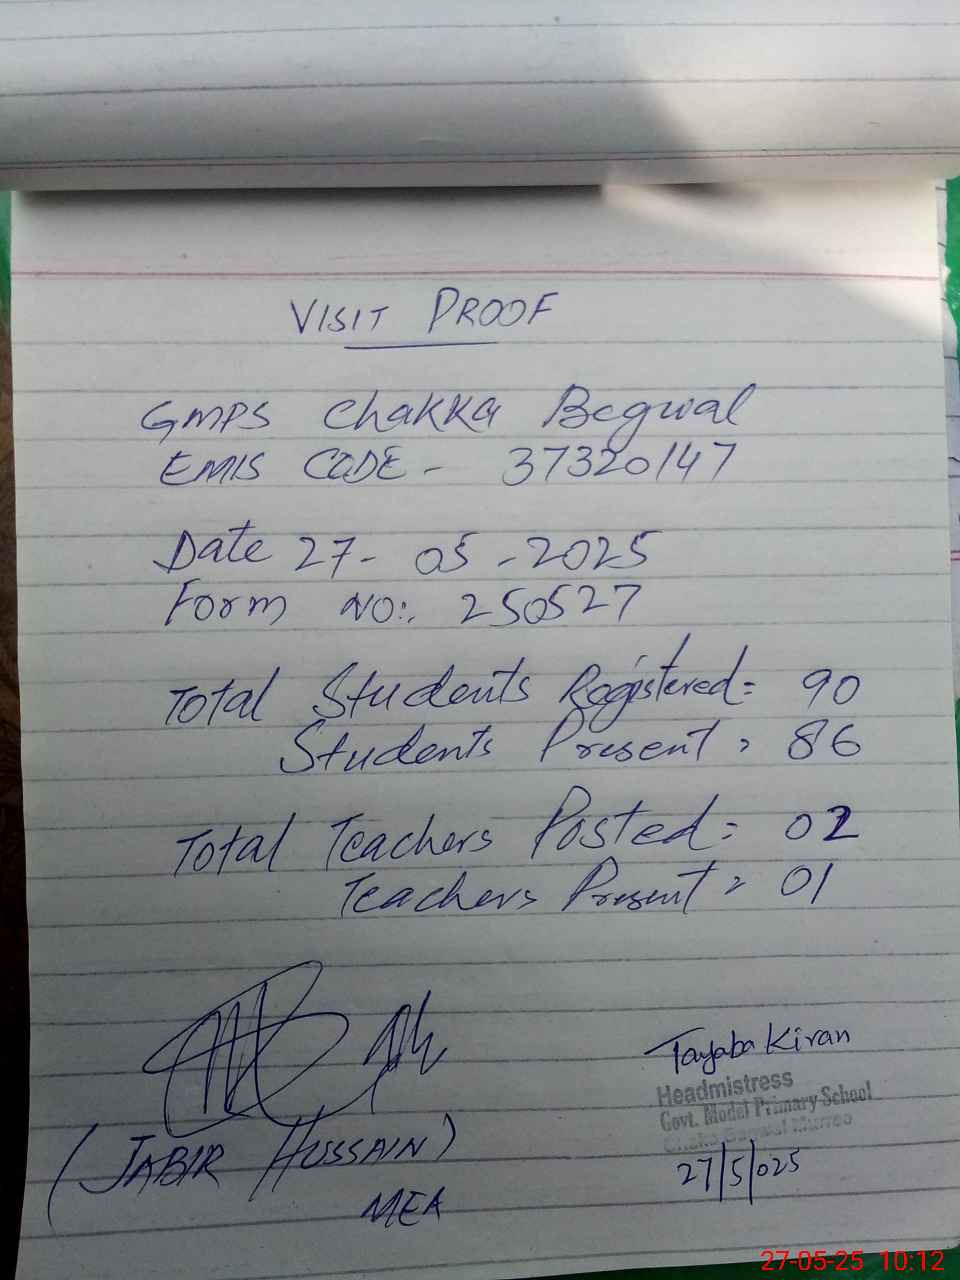 VISIT PROOF
GMPS Chakka Begwal
EMIS CODE - 37320147
Date 27 - 05 - 2025
Form NO:. 250527
Total Students Registered = 90
Students Present = 86
Total Teachers Posted = 02
Teachers Present = 01
Tayaba Kiran
Headmistress
Govt. Model Primary School
Murree
(JABIR HUSSAIN)
27/5/025
MEA
27-05-25 10:12